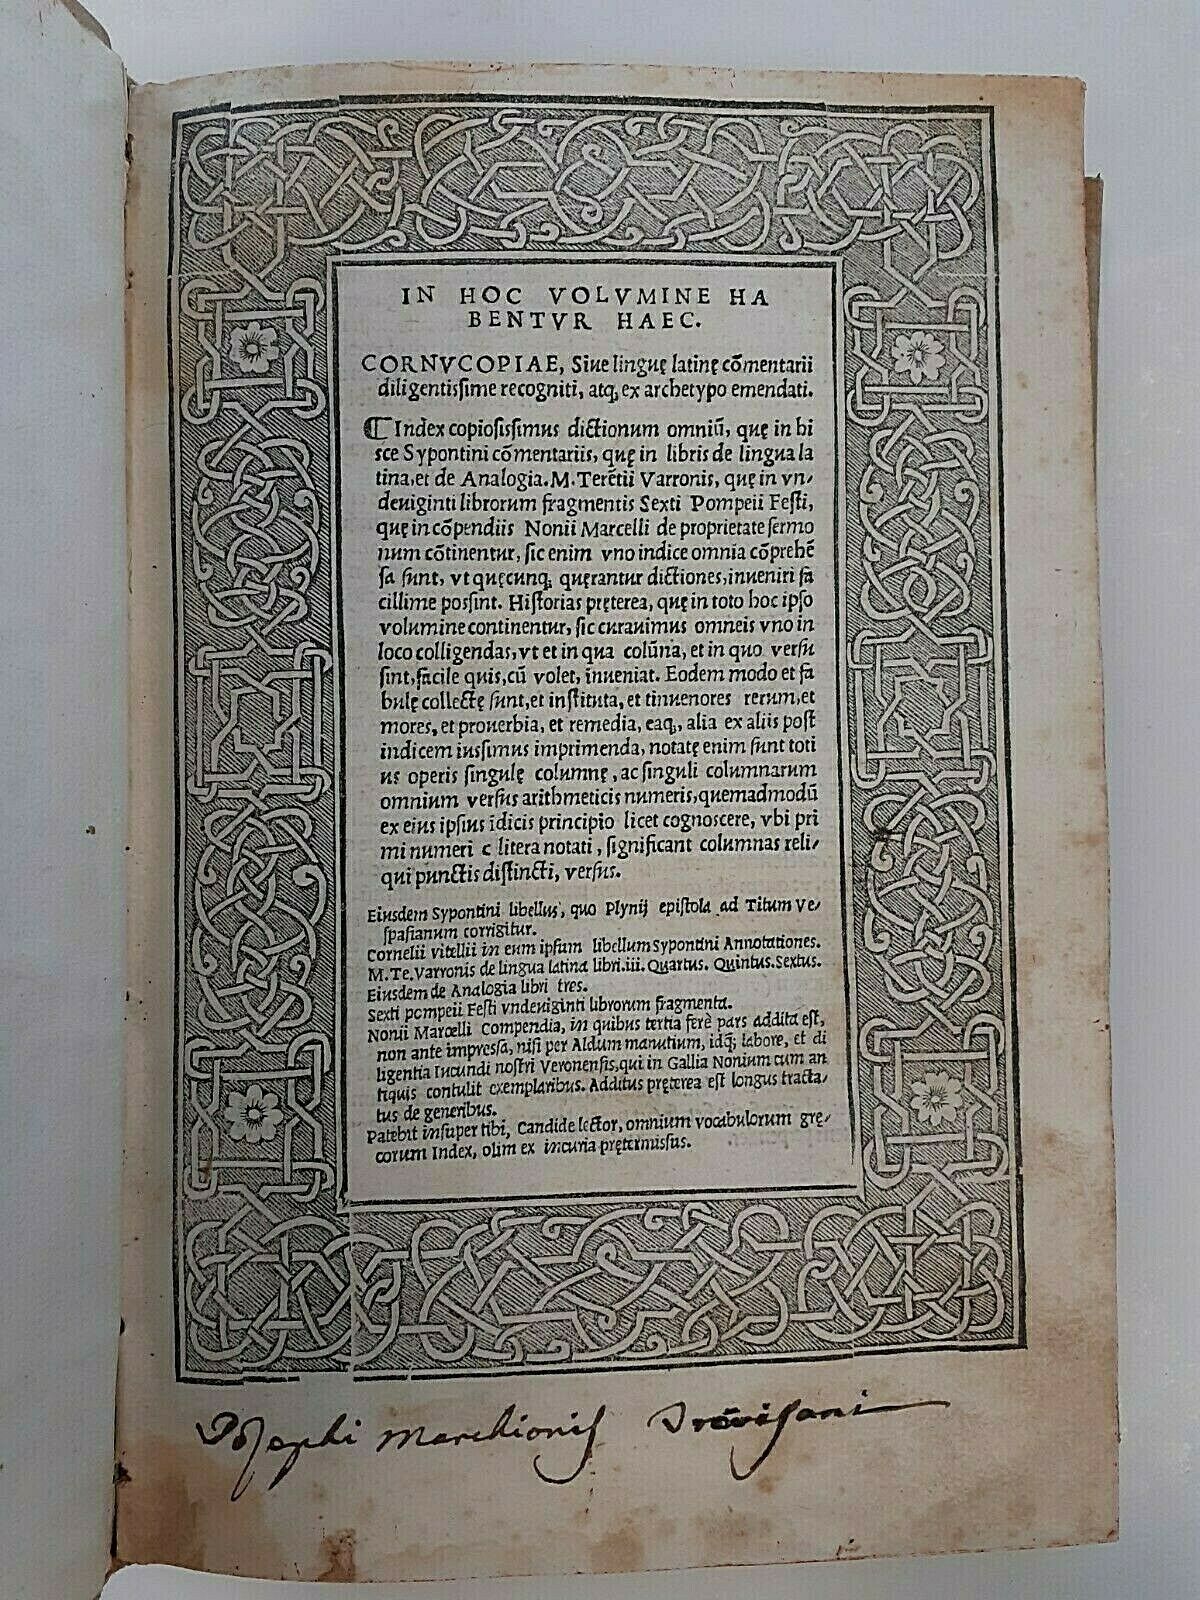 IN HOC VOLVMINE HA
BENTVR HAEC.
CORNVCOPIAE, Siue linguę latinę cõmentarii
diligentissime recogniti, atq; ex archetypo emendati.
Index copiosissimus dictionum omniũ, quę in hi
sce Sypontini cõmentariis, quę in libris de lingua la
tina, et de Analogia. M. Terẽtii Varronis, quę in vn-
deuiginti librorum fragmentis Sexti Pompeii Festi,
quę in cõpendiis Nonii Marcelli de proprietate sermo
num cõtinentur, sic enim vno indice omnia cõprehẽ
sa sunt, vt quęcunq; quęrantur dictiones, inueniri fa
cillime possint. Historias pręterea, quę in toto hoc ipso
volumine continentur, sic curauimus omneis vno in
loco colligendas, vt et in qua colũna, et in quo versu
sint, facile quis, cũ volet, inueniat. Eodem modo et fa
bulę collectę sunt, et instituta, et tinuenores rerum, et
mores, et prouerbia, et remedia, eaq; alia ex aliis post
indicem iussimus imprimenda, notatę enim sunt toti
us operis singulę columnę, ac singuli columnarum
omnium versus arithmeticis numeris, quemadmodũ
ex eius ipsius ĩdicis principio licet cognoscere, vbi pri
mi numeri c litera notati, significant columnas reli-
qui punctis distincti, versus.
Eiusdem Sypontini libellus, quo Plynij epistola ad Titum Ve-
spasianum corrigitur.
Cornelii vitellii in eum ipsum libellum Sypontini Annotationes.
M. Te. Varronis de lingua latina libri. iii. Quartus. Quintus. Sextus.
Eiusdem de Analogia libri tres.
Sexti pompeii Festi vndeuiginti librorum fragmenta.
Nonii Marcelli Compendia, in quibus tertia ferè pars addita est,
non ante impressa, nisi per Aldum manutium, idq; labore, et di
ligentia Iucundi nostri Veronensis, qui in Gallia Nonium cum an
tiquis contulit exemplaribus. Additus pręterea est longus tracta-
tus de generibus.
Patebit insuper tibi, Candide lector, omnium vocabulorum grę
corum Index, olim ex incuria prętermissus.
Josephi Marchionis Trevisani